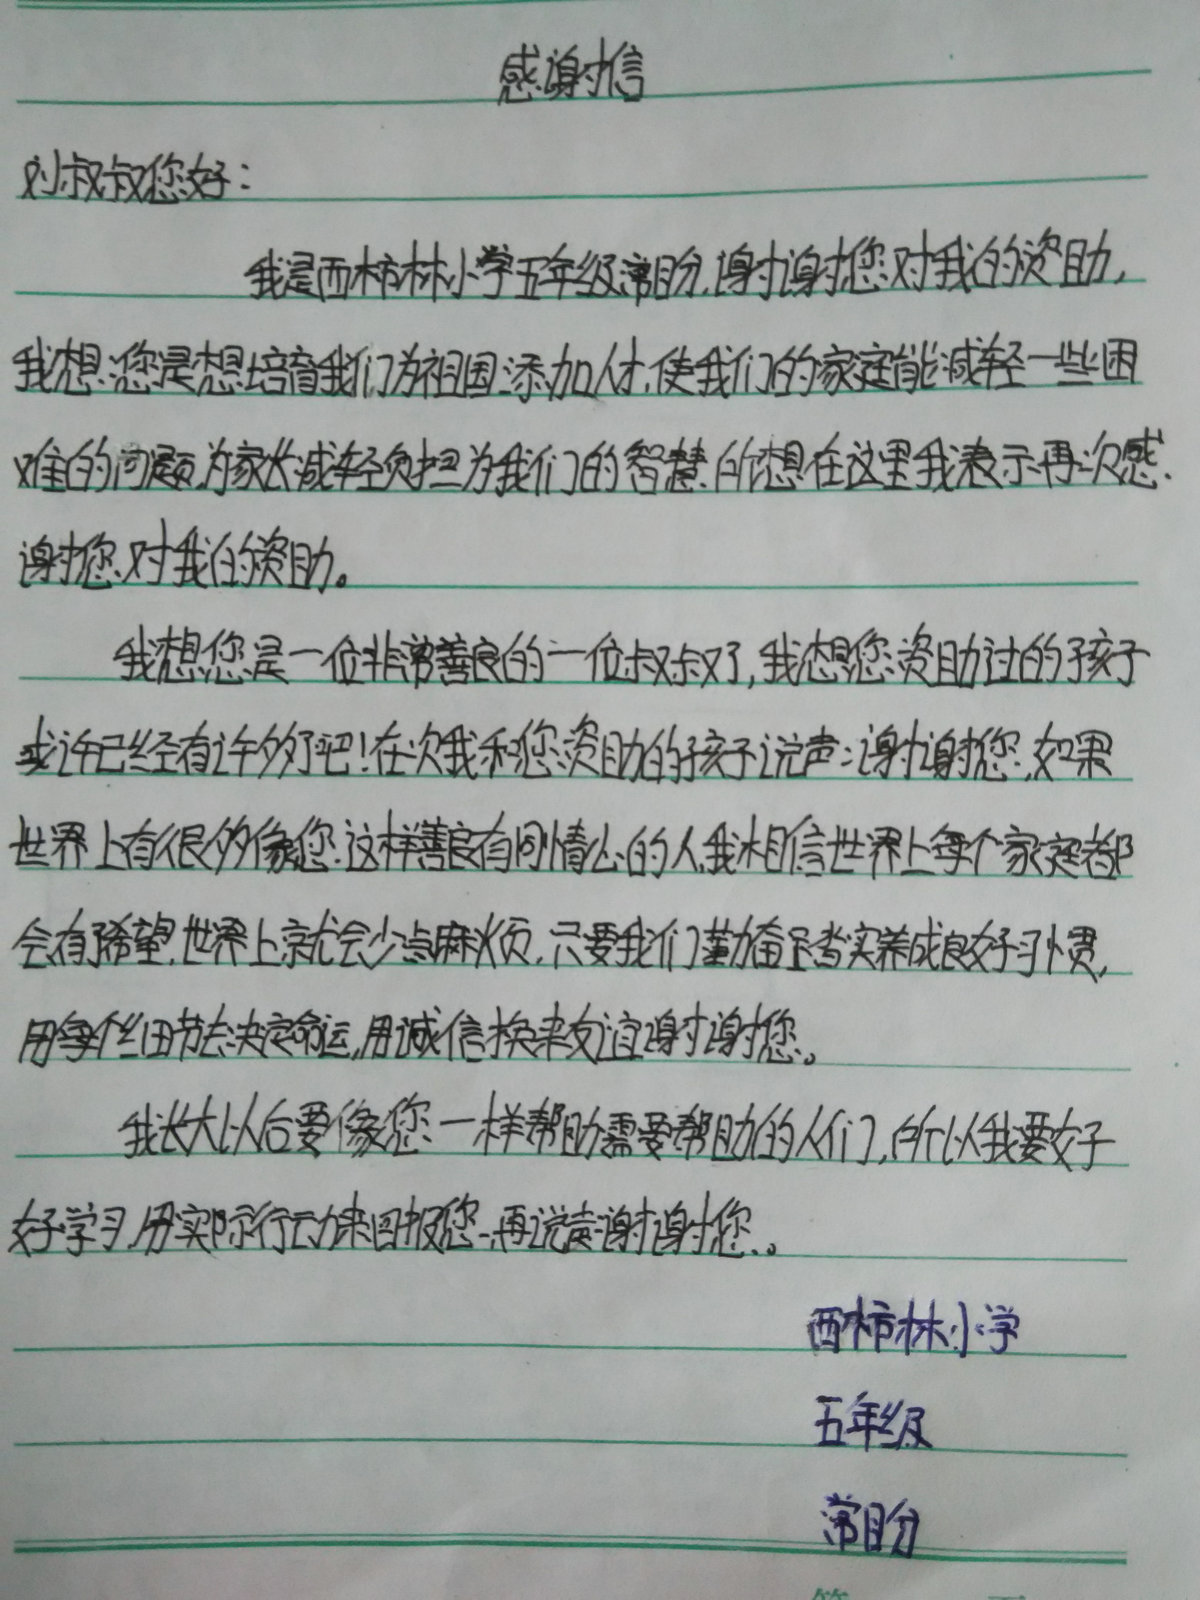 感谢信
刘叔叔您好:
我是西柿林小学五年级常目分,谢谢您对我的资助,
我想您是想培育我们为祖国添加人才,使我们的家庭能减轻一些困
难的问题,为家长减轻负担为我们的智慧.所想在这里我表示再次感
谢您对我的资助。
我想您是一位非常善良的一位叔叔了,我想您资助过的孩子
或许已经有许多了吧!在次我和您资助的孩子说声:谢谢您,如果
世界上有很多像您这样善良有同情心的人,我相信世界上每个家庭都
会有希望,世界上就会少点麻烦,只要我们勤奋踏实养成良好习惯,
用每个细节去决定命运,用诚信换来友谊谢谢您。
我长大以后要像您一样帮助需要帮助的人们,所以我要好
好学习,用实际行动来回报您,再说声谢谢您。
西柿林小学
五年级
常目分